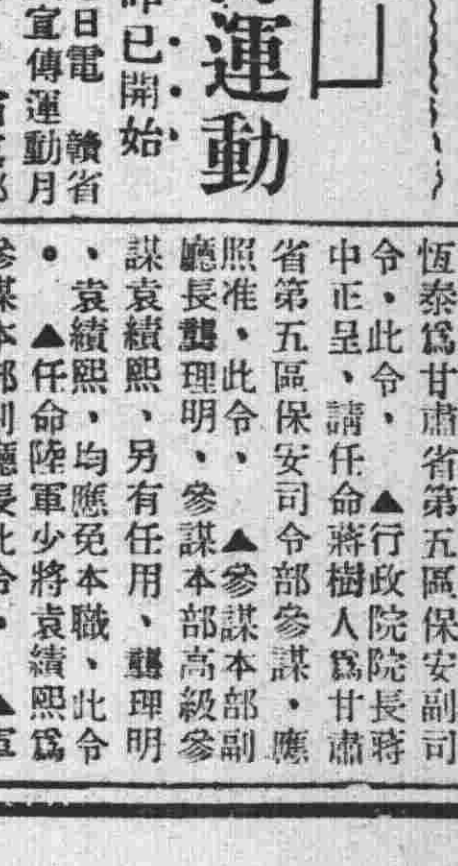 運動
部已開始
日電　贛省
宣傳運動月
恆泰爲甘肅省第五區保安副司
令，此令，　▲行政院院長蔣
中正呈、請任命蔣樹人爲甘肅
省第五區保安司令部參謀，應
照准，此令、　▲參謀本部副
廳長龔理明、參謀本部高級參
謀袁績熙、另有任用、龔理明
、袁績熙、均應免本職、此令
•　▲任命陸軍少將袁績熙爲
參謀本部副廳長此令．　▲軍